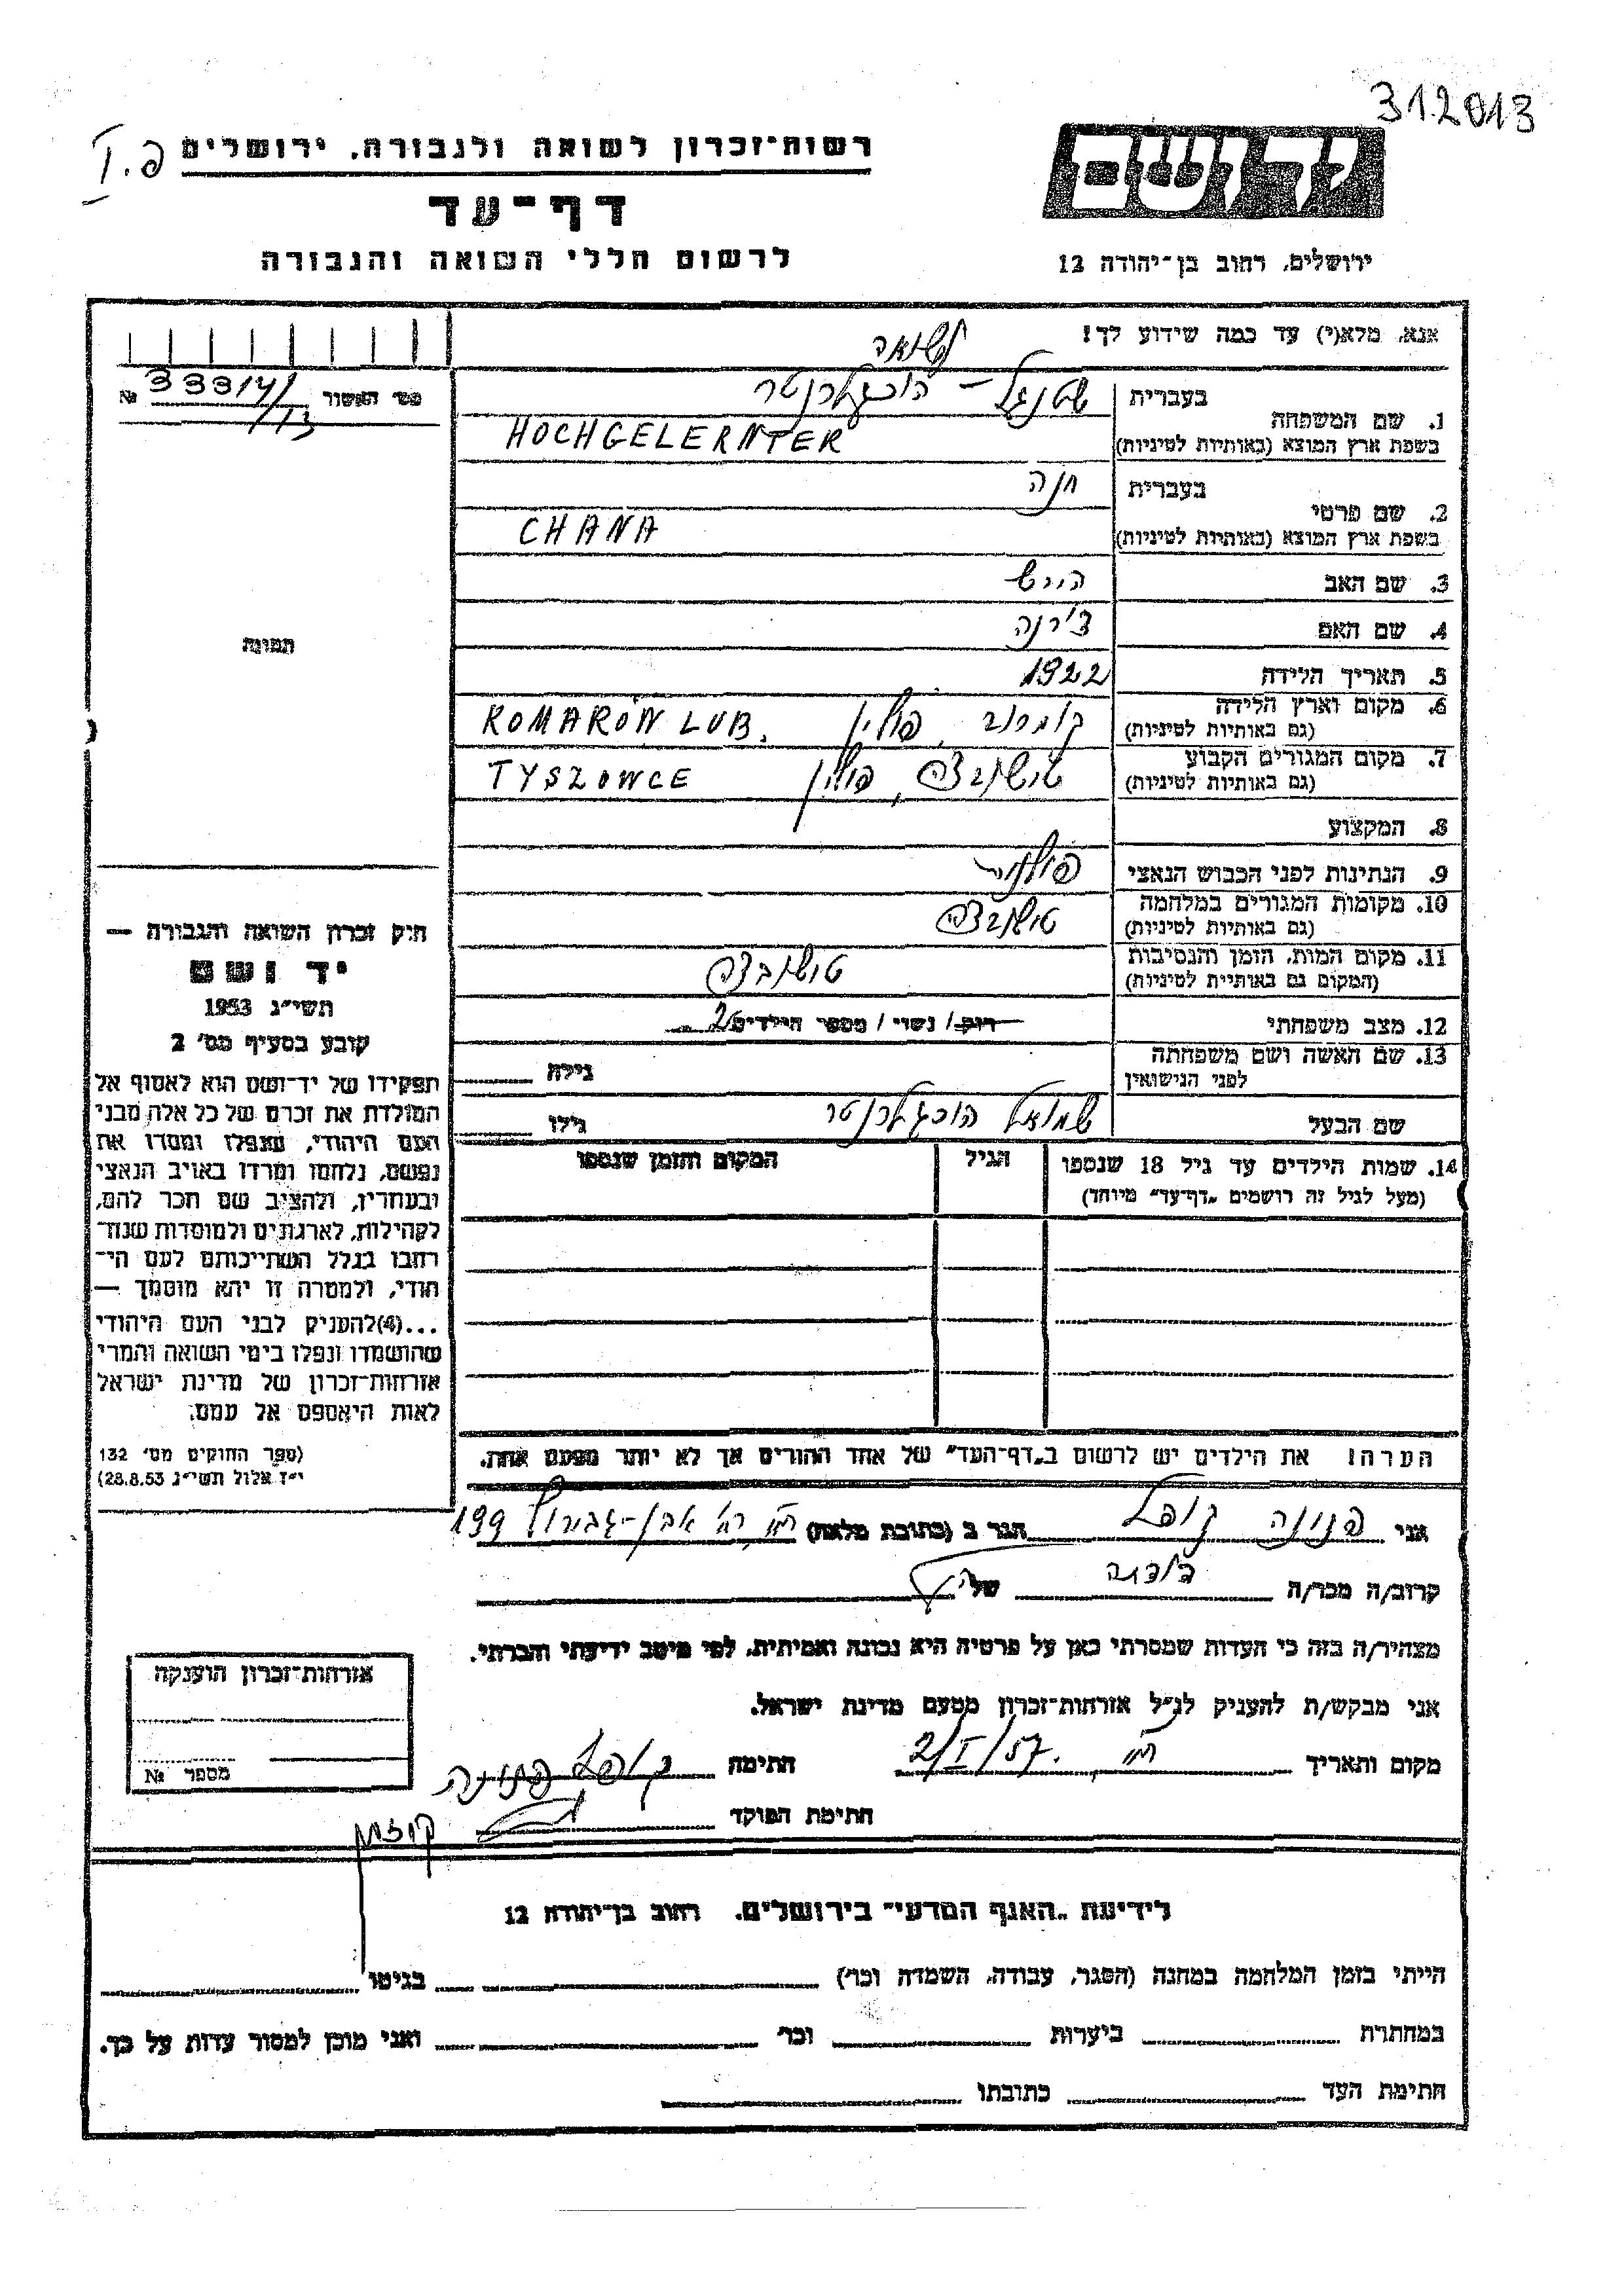 312013
רשות-זכרון לשואה ולגבורה, ירושלים
דף-עד
לרשום חללי השואה והגבורה
ידושם
ירושלים, רחוב בן-יהודה 12
אנא, מלא(י) עד כמה שידוע לך!
לנשואה
מס' האשור № 33314/
/13
1. שם המשפחה
בעברית
שטנגל – הוכגלרנטר
בשפת ארץ המוצא (באותיות לטיניות)
HOCHGELERNTER
2. שם פרטי
בעברית
חנה
בשפת ארץ המוצא (באותיות לטיניות)
CHANA
3. שם האב הירש
4. שם האם צ'רנה
5. תאריך הלידה 1922
6. מקום וארץ הלידה
(גם באותיות לטיניות)
קומרוב, פולין KOMARÓW LUB.
7. מקום המגורים הקבוע
(גם באותיות לטיניות)
טישובצה, פולין TYSZOWCE
8. המקצוע
9. הנתינות לפני הכבוש הנאצי פולנית
10. מקומות המגורים במלחמה
(גם באותיות לטיניות)
טישובצה
11. מקום המות, הזמן והנסיבות
(המקום גם באותיית לטיניות)
טישובצה
12. מצב משפחתי רוק/ נשוי / מספר הילדים 2
13. שם האשה ושם משפחתה
לפני הנישואין
גילה
שם הבעל שמואל הוכגלרנטר גילו
14. שמות הילדים עד גיל 18 שנספו
(מעל לגיל זה רושמים „דף-עד" מיוחד)
הגיל
המקום והזמן שנספו
תמונה
חיק זכרון השואה והגבורה —
יד ושם
תשי"ג 1953
קובע בסעיף מס' 2
תפקידו של יד-ושם הוא לאסוף אל
המולדת את זכרם של כל אלה מבני
העם היהודי, שנפלו ומסרו את
נפשם, נלחמו ומרדו באויב הנאצי
ובעוזריו, ולהציב שם וזכר להם,
לקהילות, לארגונים ולמוסדות שנח-
רחבו בגלל השתייכותם לעם הי-
הודי, ולמטרה זו יהא מוסמך —
...(4)להעניק לבני העם היהודי
שהושמדו ונפלו בימי השואה והמרי
אזרחות-זכרון של מדינת ישראל
לאות היאספם אל עמם.
(ספר החוקים מס' 132
י"ז אלול תשי"ג 28.8.53)
הערה! את הילדים יש לרשום ב„דף-העד" של אחד ההורים אך לא יותר מפעם אחת.
אני פנינה קופל הגר ב (כתובת מלאה) רח' אבן-גבירול 199
קרוב/ה מכר/ה דודה של
מצהיר/ה בזה כי העדות שמסרתי כאן על פרטיה היא נכונה ואמיתית, לפי מיטב ידיעתי והכרתי.
אני מבקש/ת להעניק לנ"ל אזרחות-זכרון מטעם מדינת ישראל.
מקום ותאריך 2/I/57 חתימה קופל פנינה
חתימת הפוקד
אזרחות-זכרון הוענקה
מספר №
לידיעת „האגף המדעי" בירושלים, רחוב בן-יהודה 12
הייתי בזמן המלחמה במחנה (הסגר, עבודה, השמדה וכו') בגיטו
במחתרת ביערות וכו' ואני מוכן למסור עדות על כך.
חתימת העד כתובתו